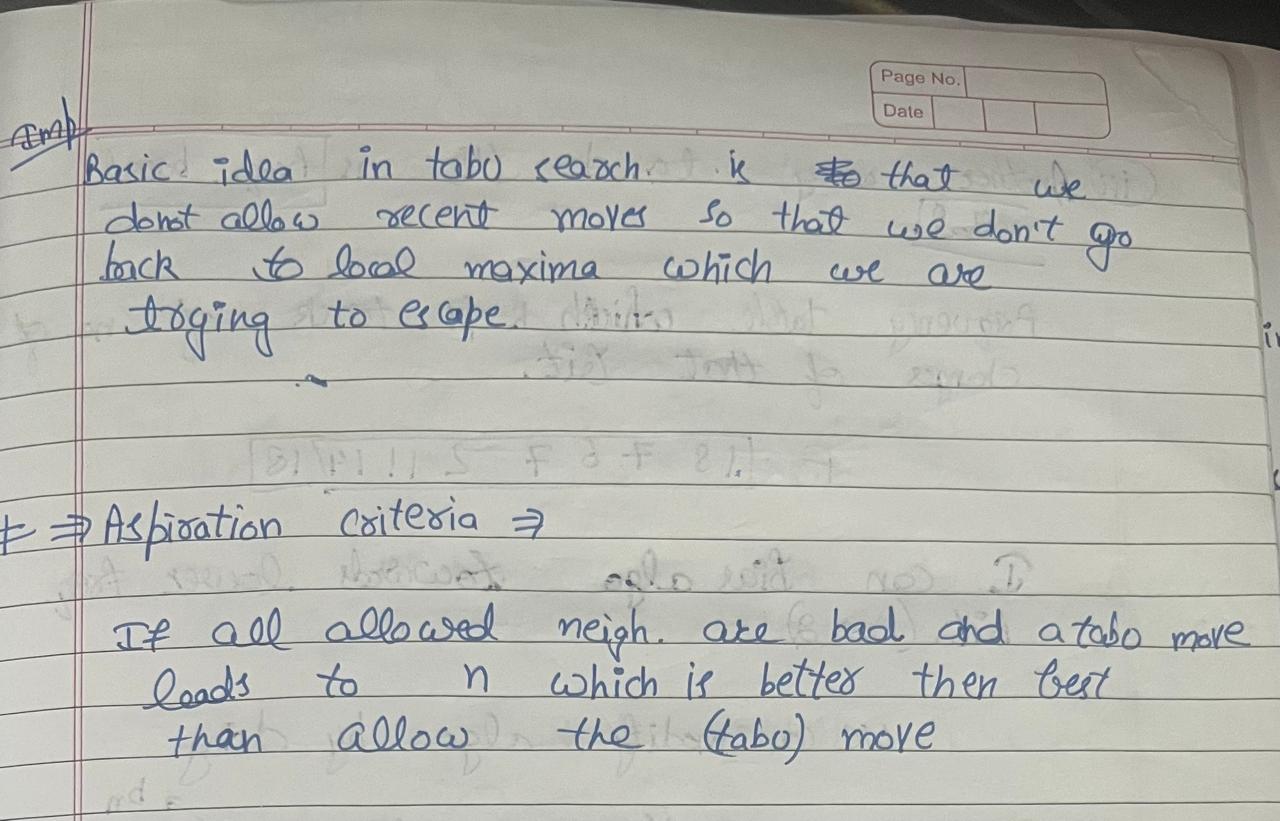 Page No.
Date
Imp
Basic idea in tabo search. is that we
donot allow recent moves so that we don't go
back to local maxima which we are
trying to escape.
⇒ Aspiration criteria ⇒
If all allowed neigh. are bad and a tabo move
leads to n which is better then best
than allow the (tabo) move